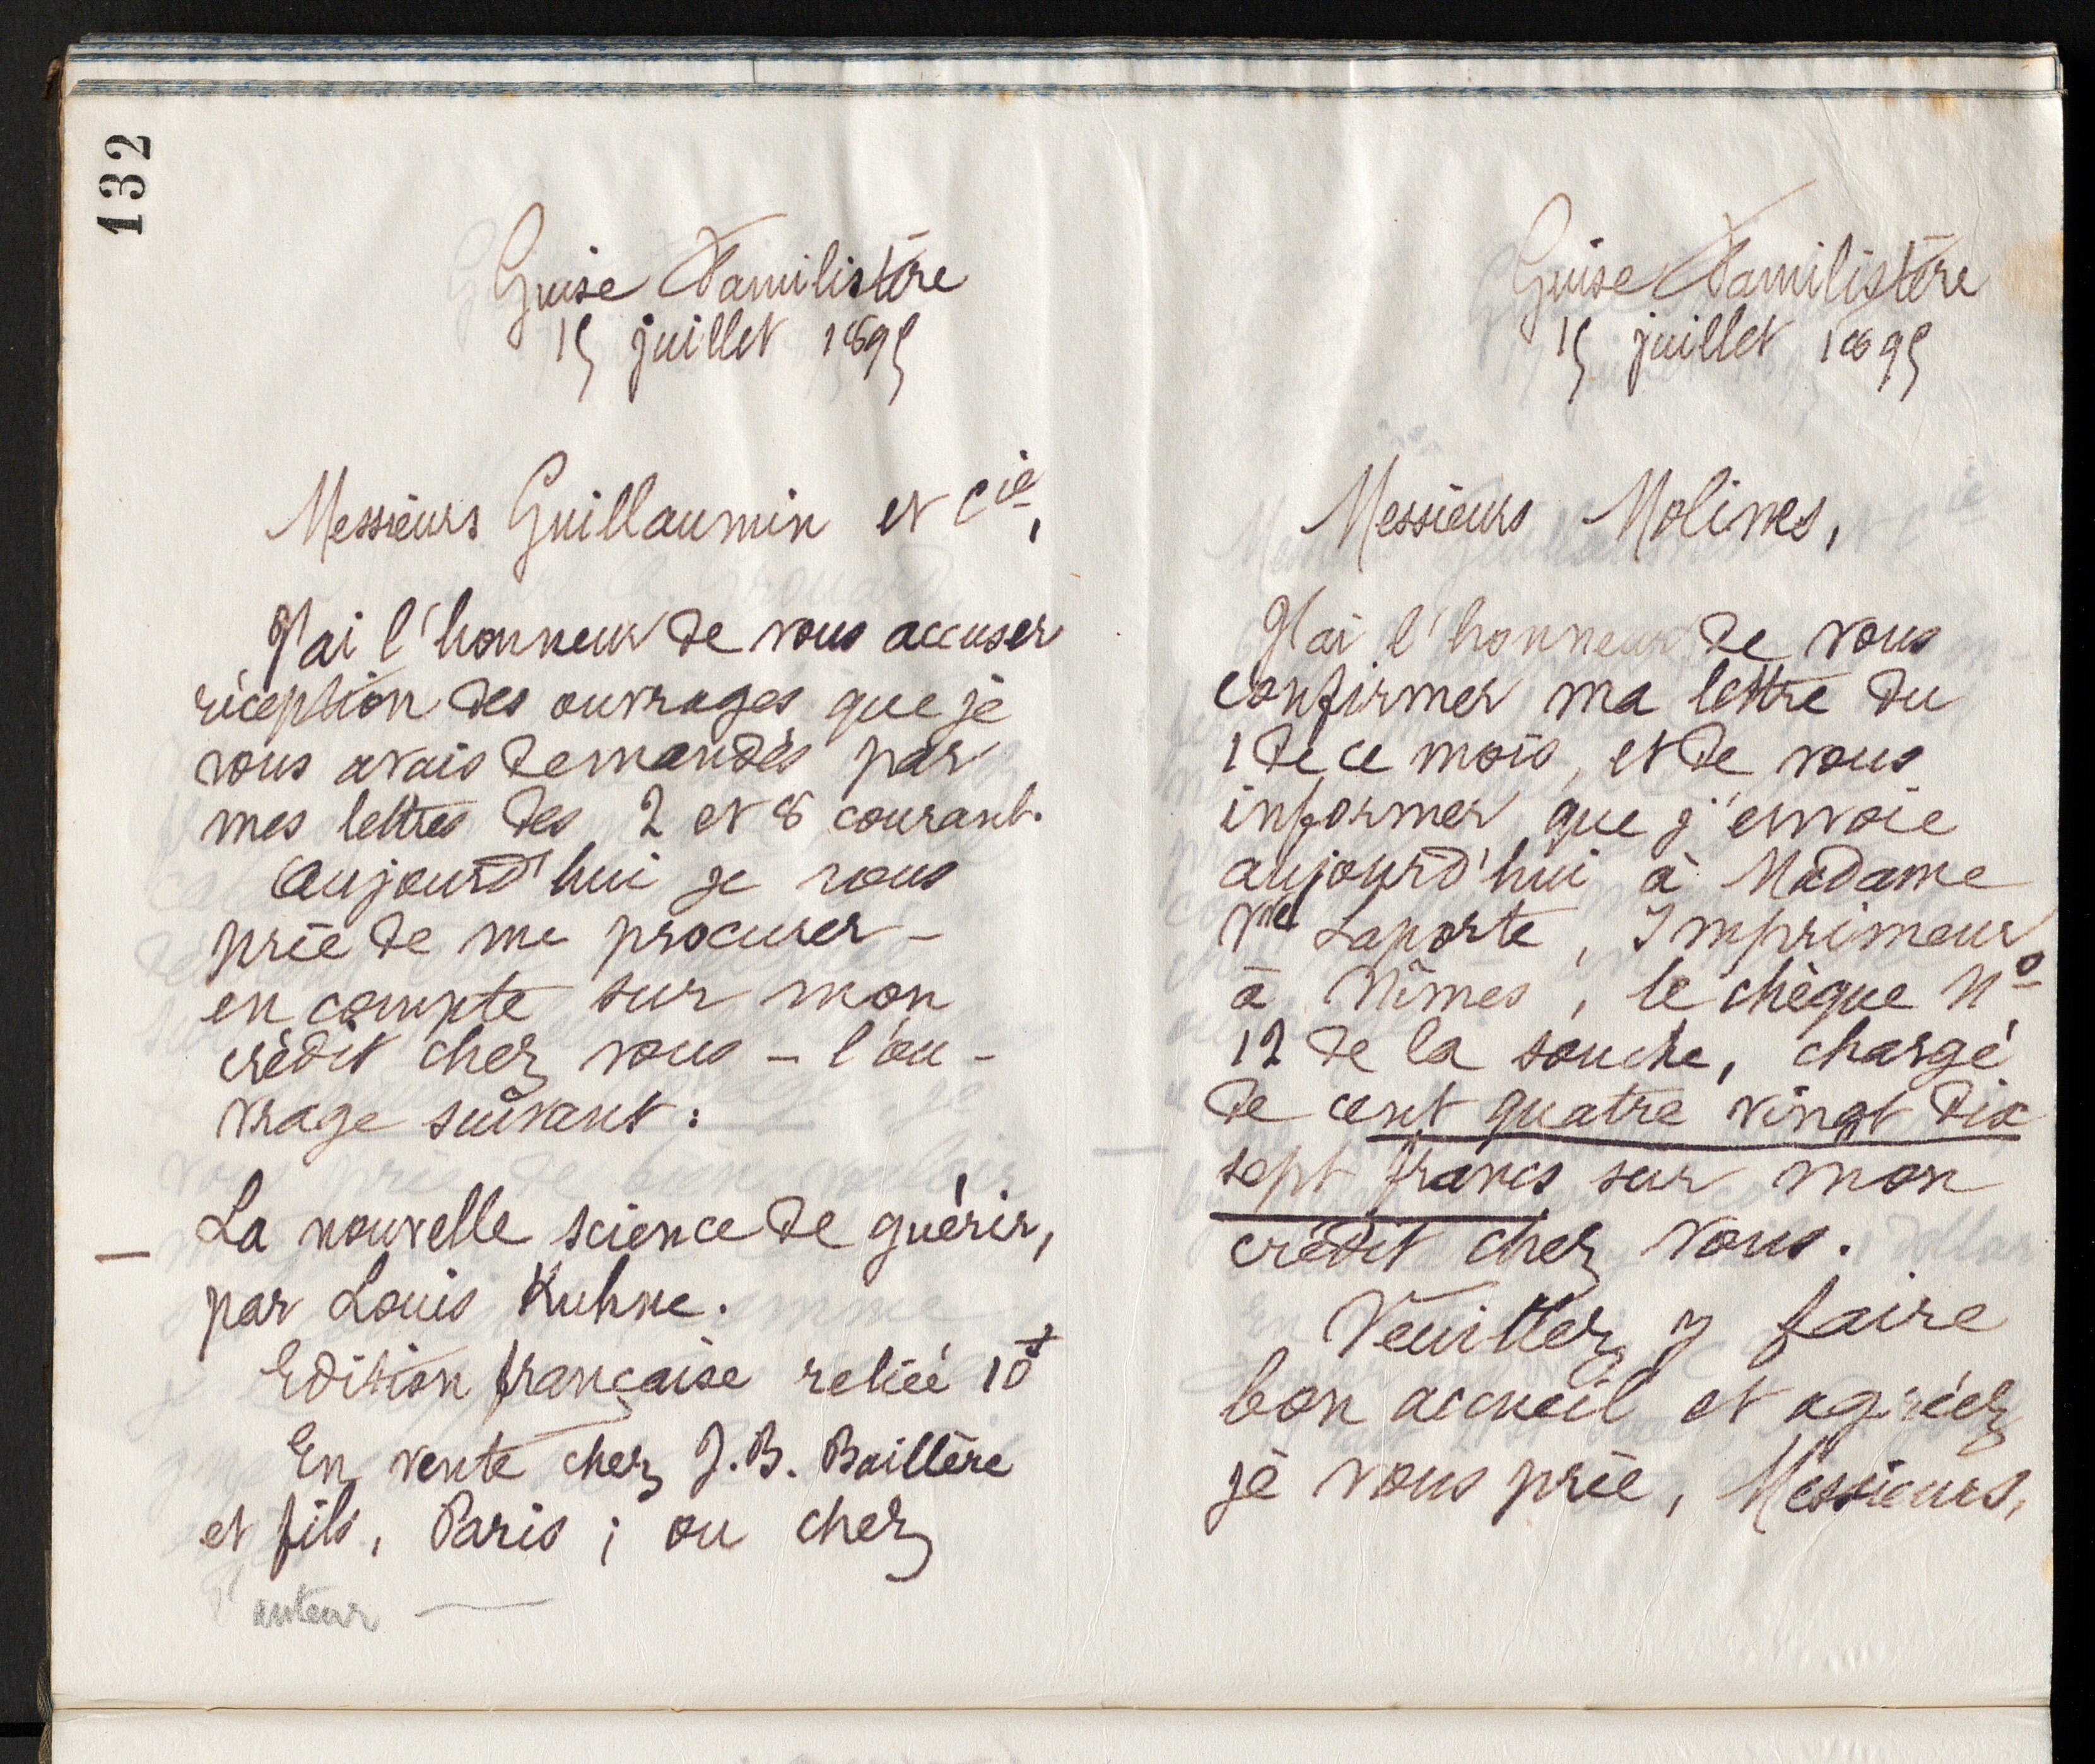 132
Guise Familistère
15 juillet 1895
Messieurs Guillaumin et Cie,
J'ai l'honneur de vous accuser
réception des ouvrages que je
vous avais demandés par
mes lettres des 2 et 8 courant.
Aujourd'hui je vous
prie de me procurer -
en compte sur mon
crédit chez vous - l'ou-
vrage suivant :
- La nouvelle science de guérir,
par Louis Kuhne.
Edition française reliée 10f
En vente chez J.B. Baillère
et fils, Paris ; ou chez
l'auteur —
Guise Familistère
15 juillet 1895
Messieurs Molines,
J'ai l'honneur de vous
confirmer ma lettre du
1 de ce mois, et de vous
informer que j'envoie
aujourd'hui à Madame
Vve Laporte, Imprimeur
à Nîmes, le chèque No
12 de la souche, chargé
de cent quatre vingt dix
sept francs sur mon
crédit chez vous.
Veuillez y faire
bon accueil et agréez
je vous prie, Messieurs,